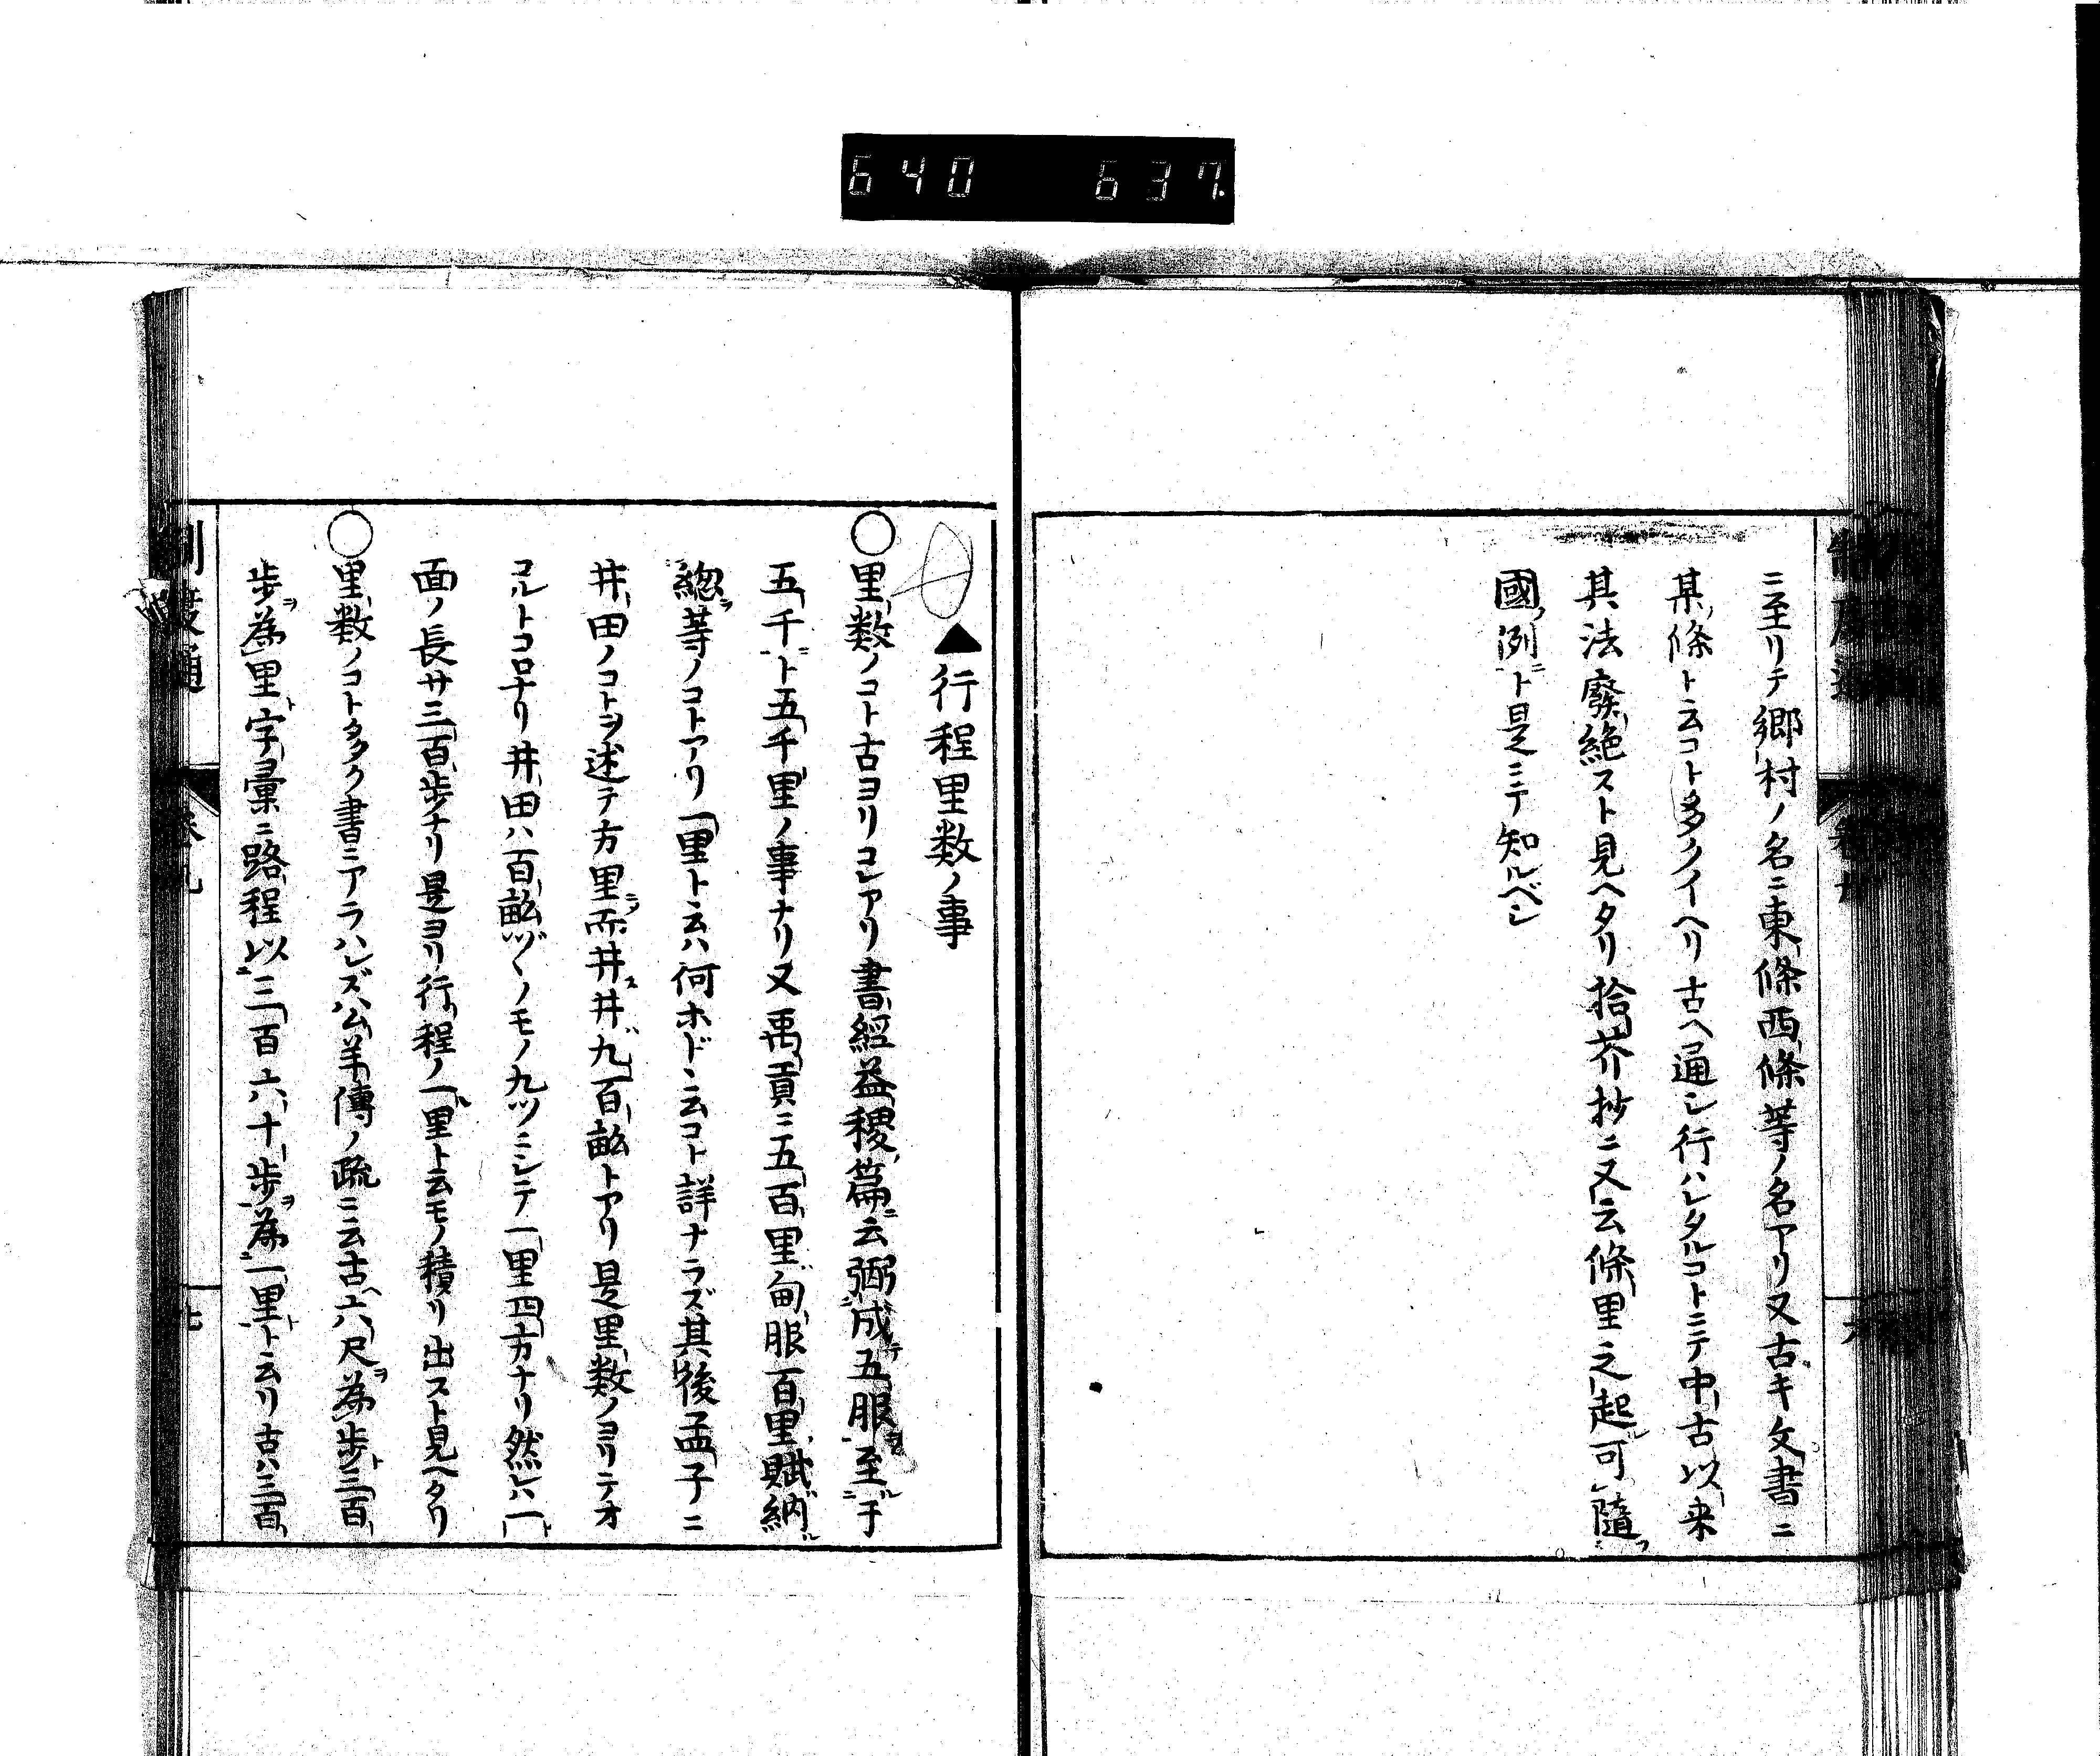 640 637.
ニ至リテ郷村ノ名ニ東條西條等ノ名アリ又古キ文書ニ
某條ト云コト多クイヘリ古ヘ通シ行ハレタルコトニテ中古以来
其法廢絶スト見ヘタリ拾芥抄ニ又云條里之起可隨
國例ト是ニテ知ルベシ
▲行程里数ノ事
○里数ノコト古ヨリコレアリ書經益稷篇云弼成五服至于
五千ト五千里ノ事ナリ又禹貢ニ五百里甸服百里賦納
緫等ノコトアリ一里ト云ハ何ホドヽ云コト詳ナラズ其後孟子ニ
井田ノコトヲ述テ方里而井井九百畝トアリ是里数ノヨリテオ
コルトコロナリ井田ハ百畝ヅヽノモノ九ツニシテ一里四方ナリ然レハ一
面ノ長サ三百歩ナリ是ヨリ行程ノ一里ト云モノ積リ出スト見ヘタリ
○里数ノコトタク書ニアラハレズ公羊傳ノ疏ニ云古六尺為歩三百
歩為里字彙ニ路程以三百六十歩為一里ト云リ古ハ三百
制度通
卷九
七